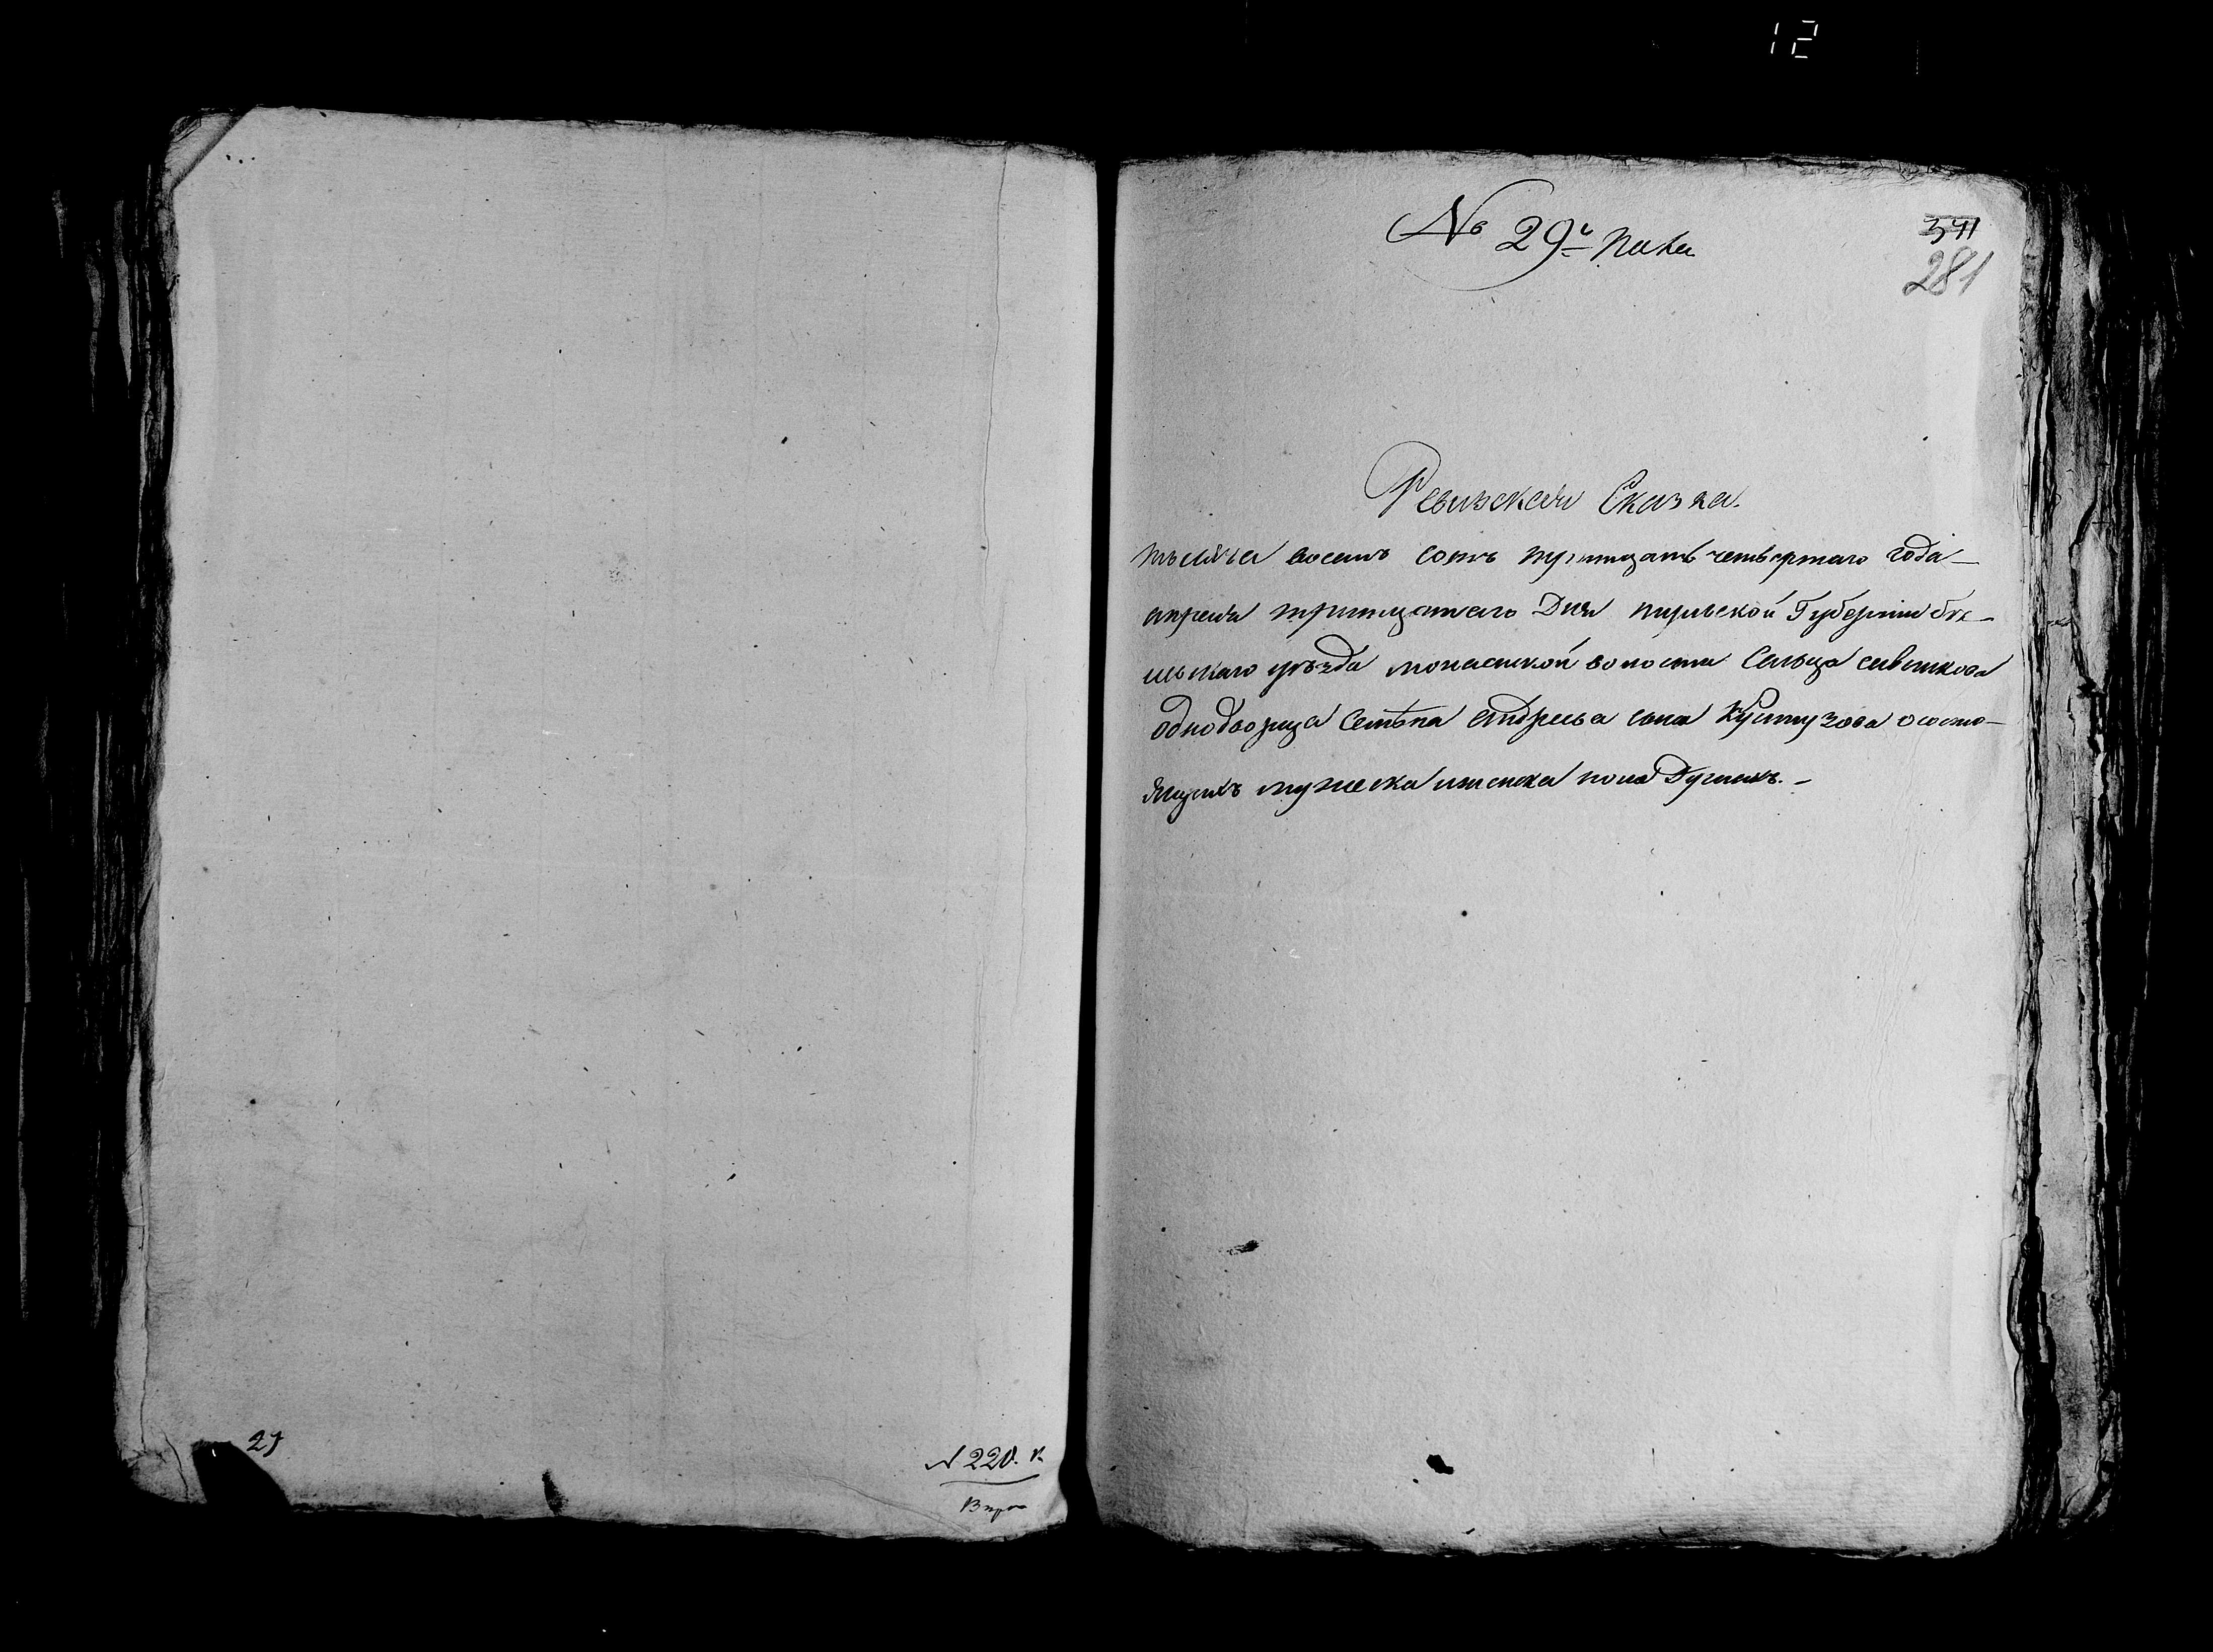 12
№ 29й
341
281
Ревиская Сказка.
тысяча восемь сотъ тритцать четвертаго года
апреля тритцатаго Дня Губернии бѣ-
уѣзда монастской волости Сельца
однодворца Андреева сына Кутузова о состо-
ящихъ мужеска иженска пола Душахъ.
27
N 220.